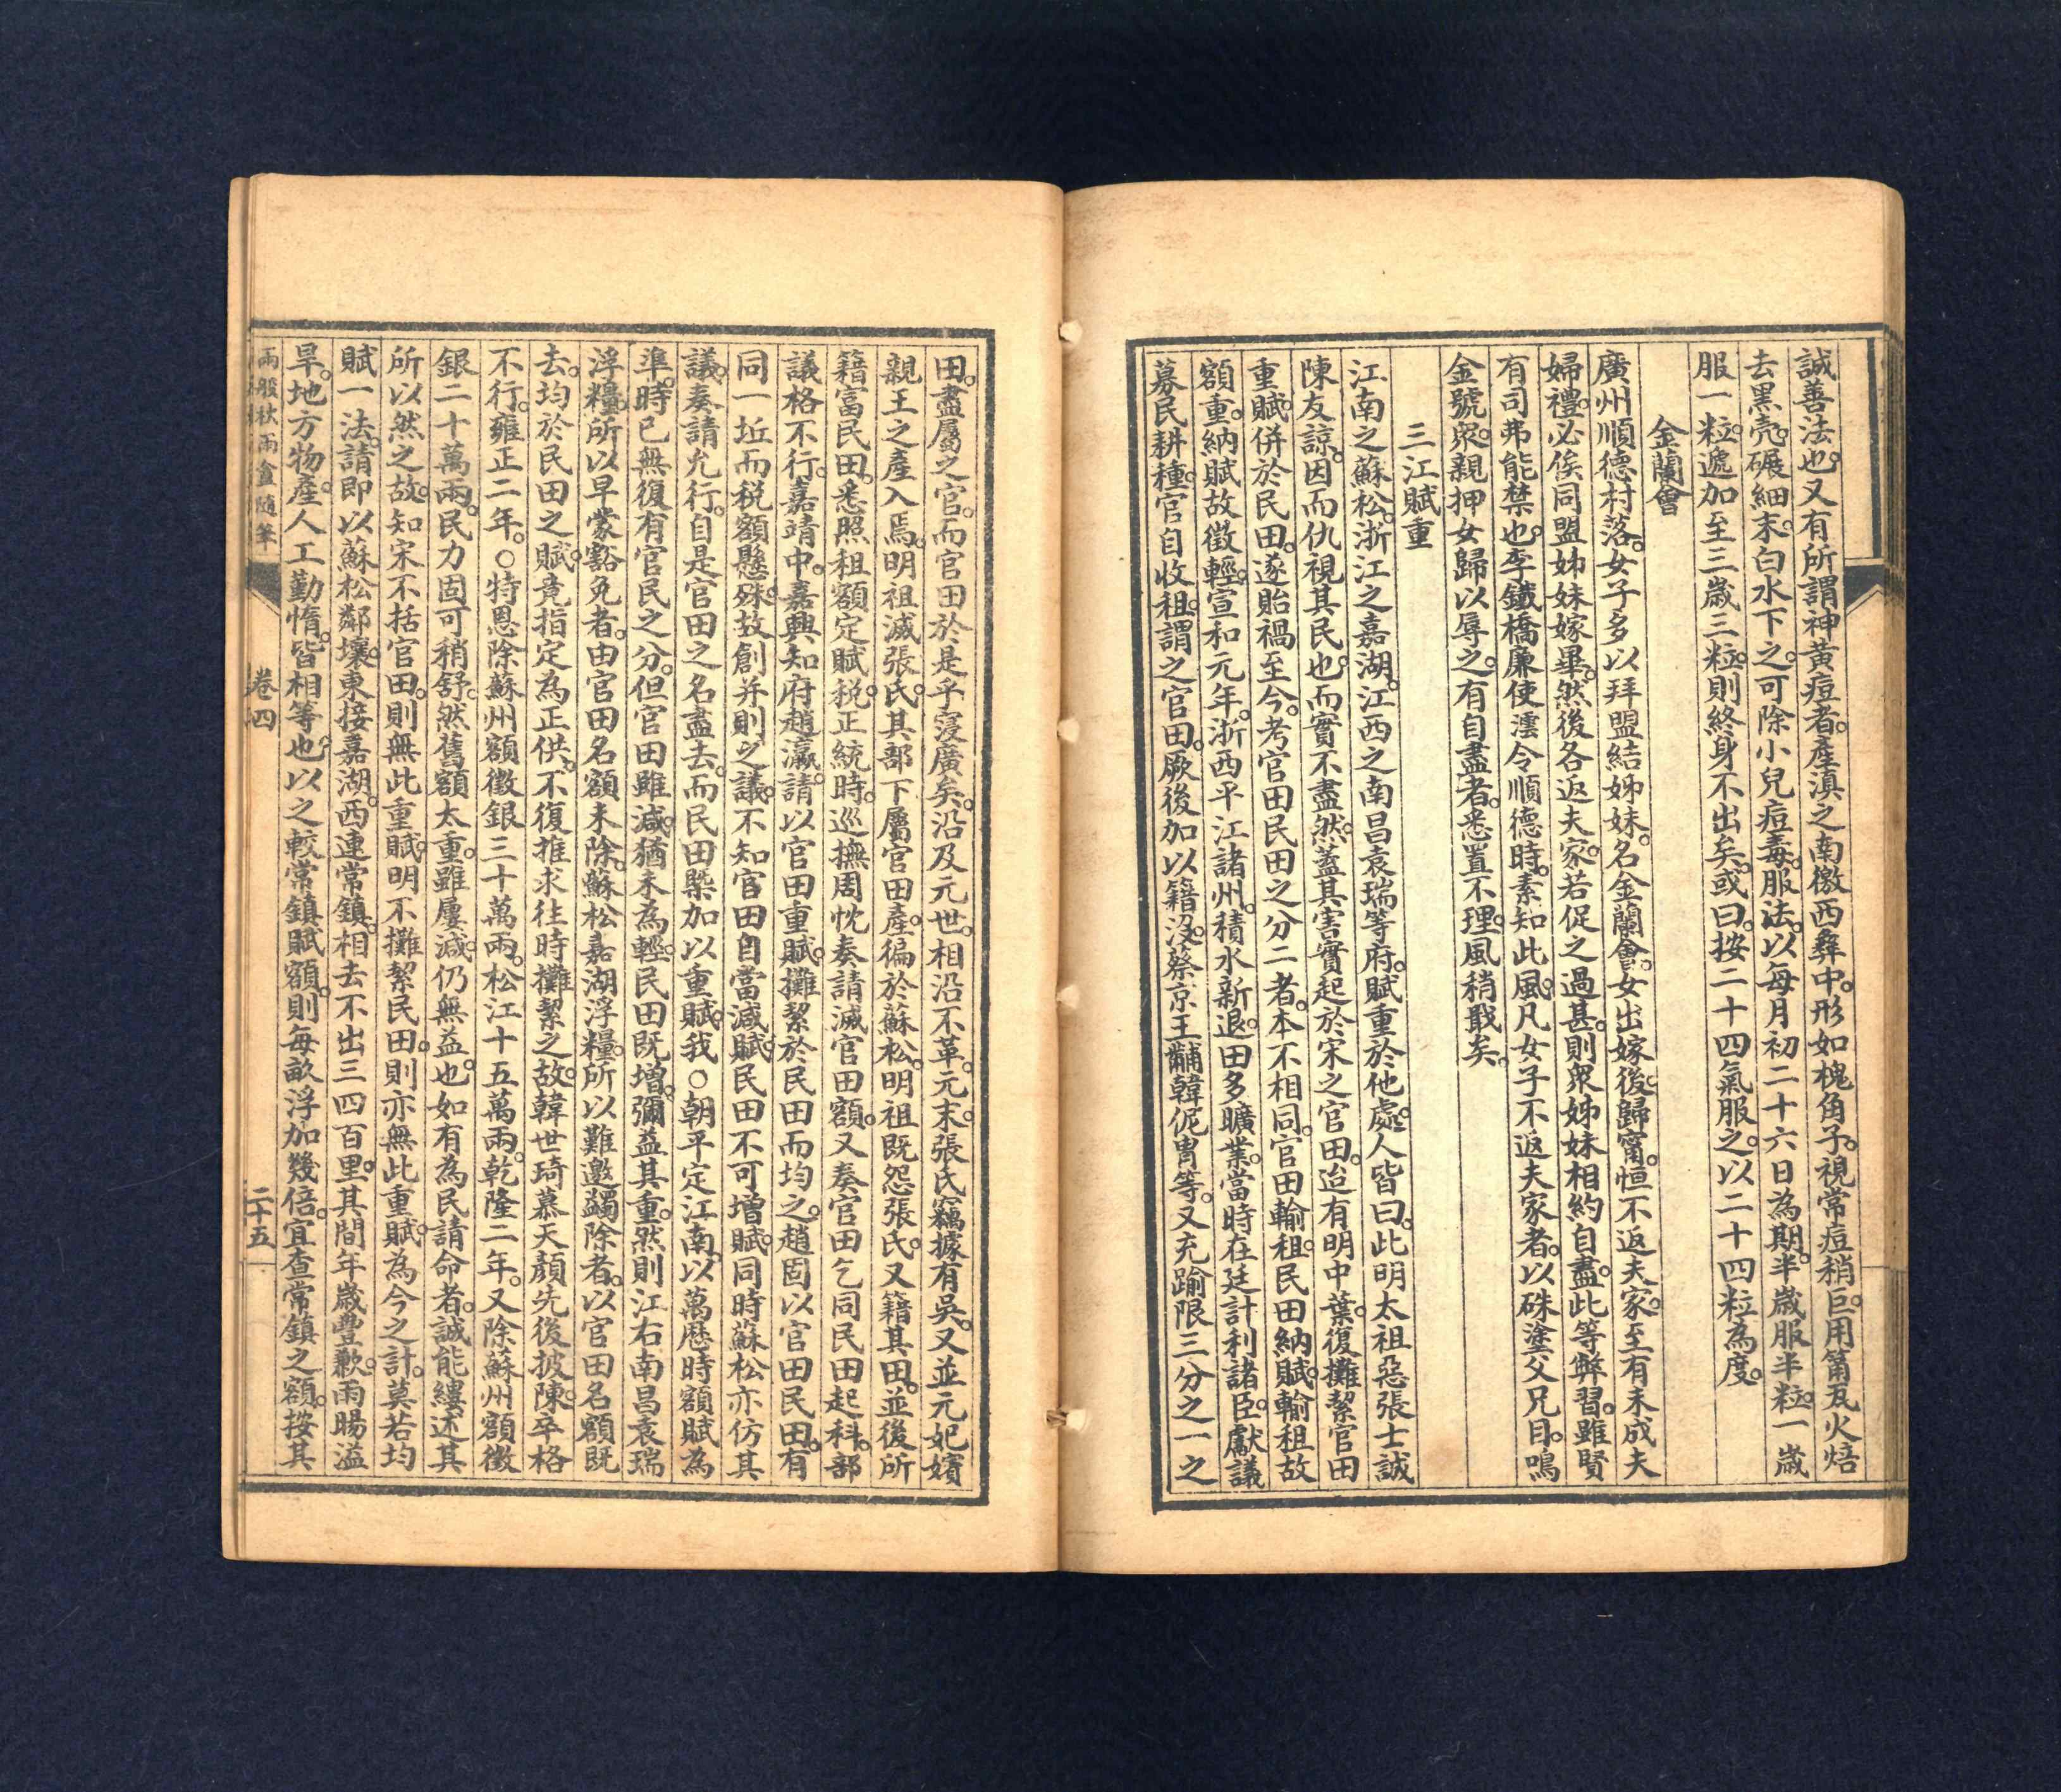 誠善法也。又有所謂神黃痘者。產滇之南徼西彝中。形如槐角子。視常痘稍巨。用筩瓦火焙
去黑壳。碾細末。白水下之。可除小兒痘毒。服法。以每月初二十六日為期。半歲服半粒。一歲
服一粒。遞加至三歲三粒。則終身不出矣。或曰。按二十四氣服之。以二十四粒為度。
金蘭會
廣州順德村落。女子多以拜盟結姊妹。名金蘭會。女出嫁後歸甯。恒不返夫家。至有未成夫
婦禮。必俟同盟姊妹嫁畢。然後各返夫家。若促之過甚。則衆姊妹相約自盡。此等弊習。雖賢
有司弗能禁也。李鐵橋廉使澐令順德時。素知此風。凡女子不返夫家者。以硃塗父兄目。鳴
金號衆。親押女歸以辱之。有自盡者。悉置不理。風稍戢矣。
三江賦重
江南之蘇松。浙江之嘉湖。江西之南昌袁瑞等府。賦重於他處。人皆曰。此明太祖惡張士誠
陳友諒。因而仇視其民也。而實不盡然。蓋其害實起於宋之官田。迨有明中葉。復攤絜官田
重賦。併於民田。遂貽禍至今。考官田民田之分二者。本不相同。官田輸租。民田納賦。輸租故
額重。納賦故徵輕。宣和元年。浙西平江諸州。積水新退。田多曠業。當時在廷計利諸臣。獻議
募民耕種。官自收租。謂之官田。厥後加以籍沒。蔡京王黼韓侂冑等。又充踰限三分之一之
田。盡屬之官。而官田於是乎寖廣矣。沿及元世。相沿不革。元末。張氏竊據有吳。又並元妃嬪
親王之產入焉。明祖滅張氏。其部下屬官田產。徧於蘇松。明祖既怨張氏。又籍其田。並後所
籍富民田。悉照租額定賦稅。正統時。巡撫周忱奏請減官田額。又奏官田乞同民田起科。部
議格不行。嘉靖中。嘉興知府趙瀛。請以官田重賦。攤絜於民田而均之。趙固以官田民田。有
同一坵而稅額懸殊。故創并則之議。不知官田自當減賦。民田不可增賦。同時蘇松亦仿其
議。奏請允行。自是官田之名盡去。而民田槩加以重賦。我○朝平定江南。以萬歷時額賦為
準。時已無復有官民之分。但官田雖減。猶未為輕。民田既增。彌益其重。然則江右南昌袁瑞
浮糧。所以早蒙豁免者。由官田名額未除。蘇松嘉湖浮糧。所以難邀蠲除者。以官田名額既
去。均於民田之賦。竟指定為正供。不復推求往時攤絜之故。韓世琦慕天顏先後披陳。卒格
不行。雍正二年。○特恩除蘇州額徵銀三十萬兩。松江十五萬兩。乾隆二年。又除蘇州額徵
銀二十萬兩。民力固可稍舒。然舊額太重。雖屢減。仍無益也。如有為民請命者。誠能縷述其
所以然之故。知宋不括官田。則無此重賦。明不攤絜民田。則亦無此重賦。為今之計。莫若均
賦一法。請即以蘇松鄰壤。東接嘉湖。西連常鎮。相去不出三四百里。其間年歲豐歉。雨暘溢
旱。地方物產。人工勤惰。皆相等也。以之較常鎮賦額。則每畝浮加幾倍。宜查常鎮之額。按其
兩般秋雨盦隨筆 卷四 二十五